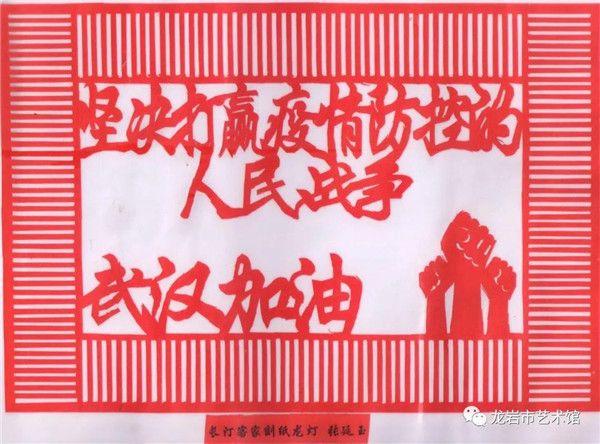 坚决打赢疫情防控的
人民战争
武汉加油
长汀客家刻纸龙灯 张廷玉
龙岩市艺术馆